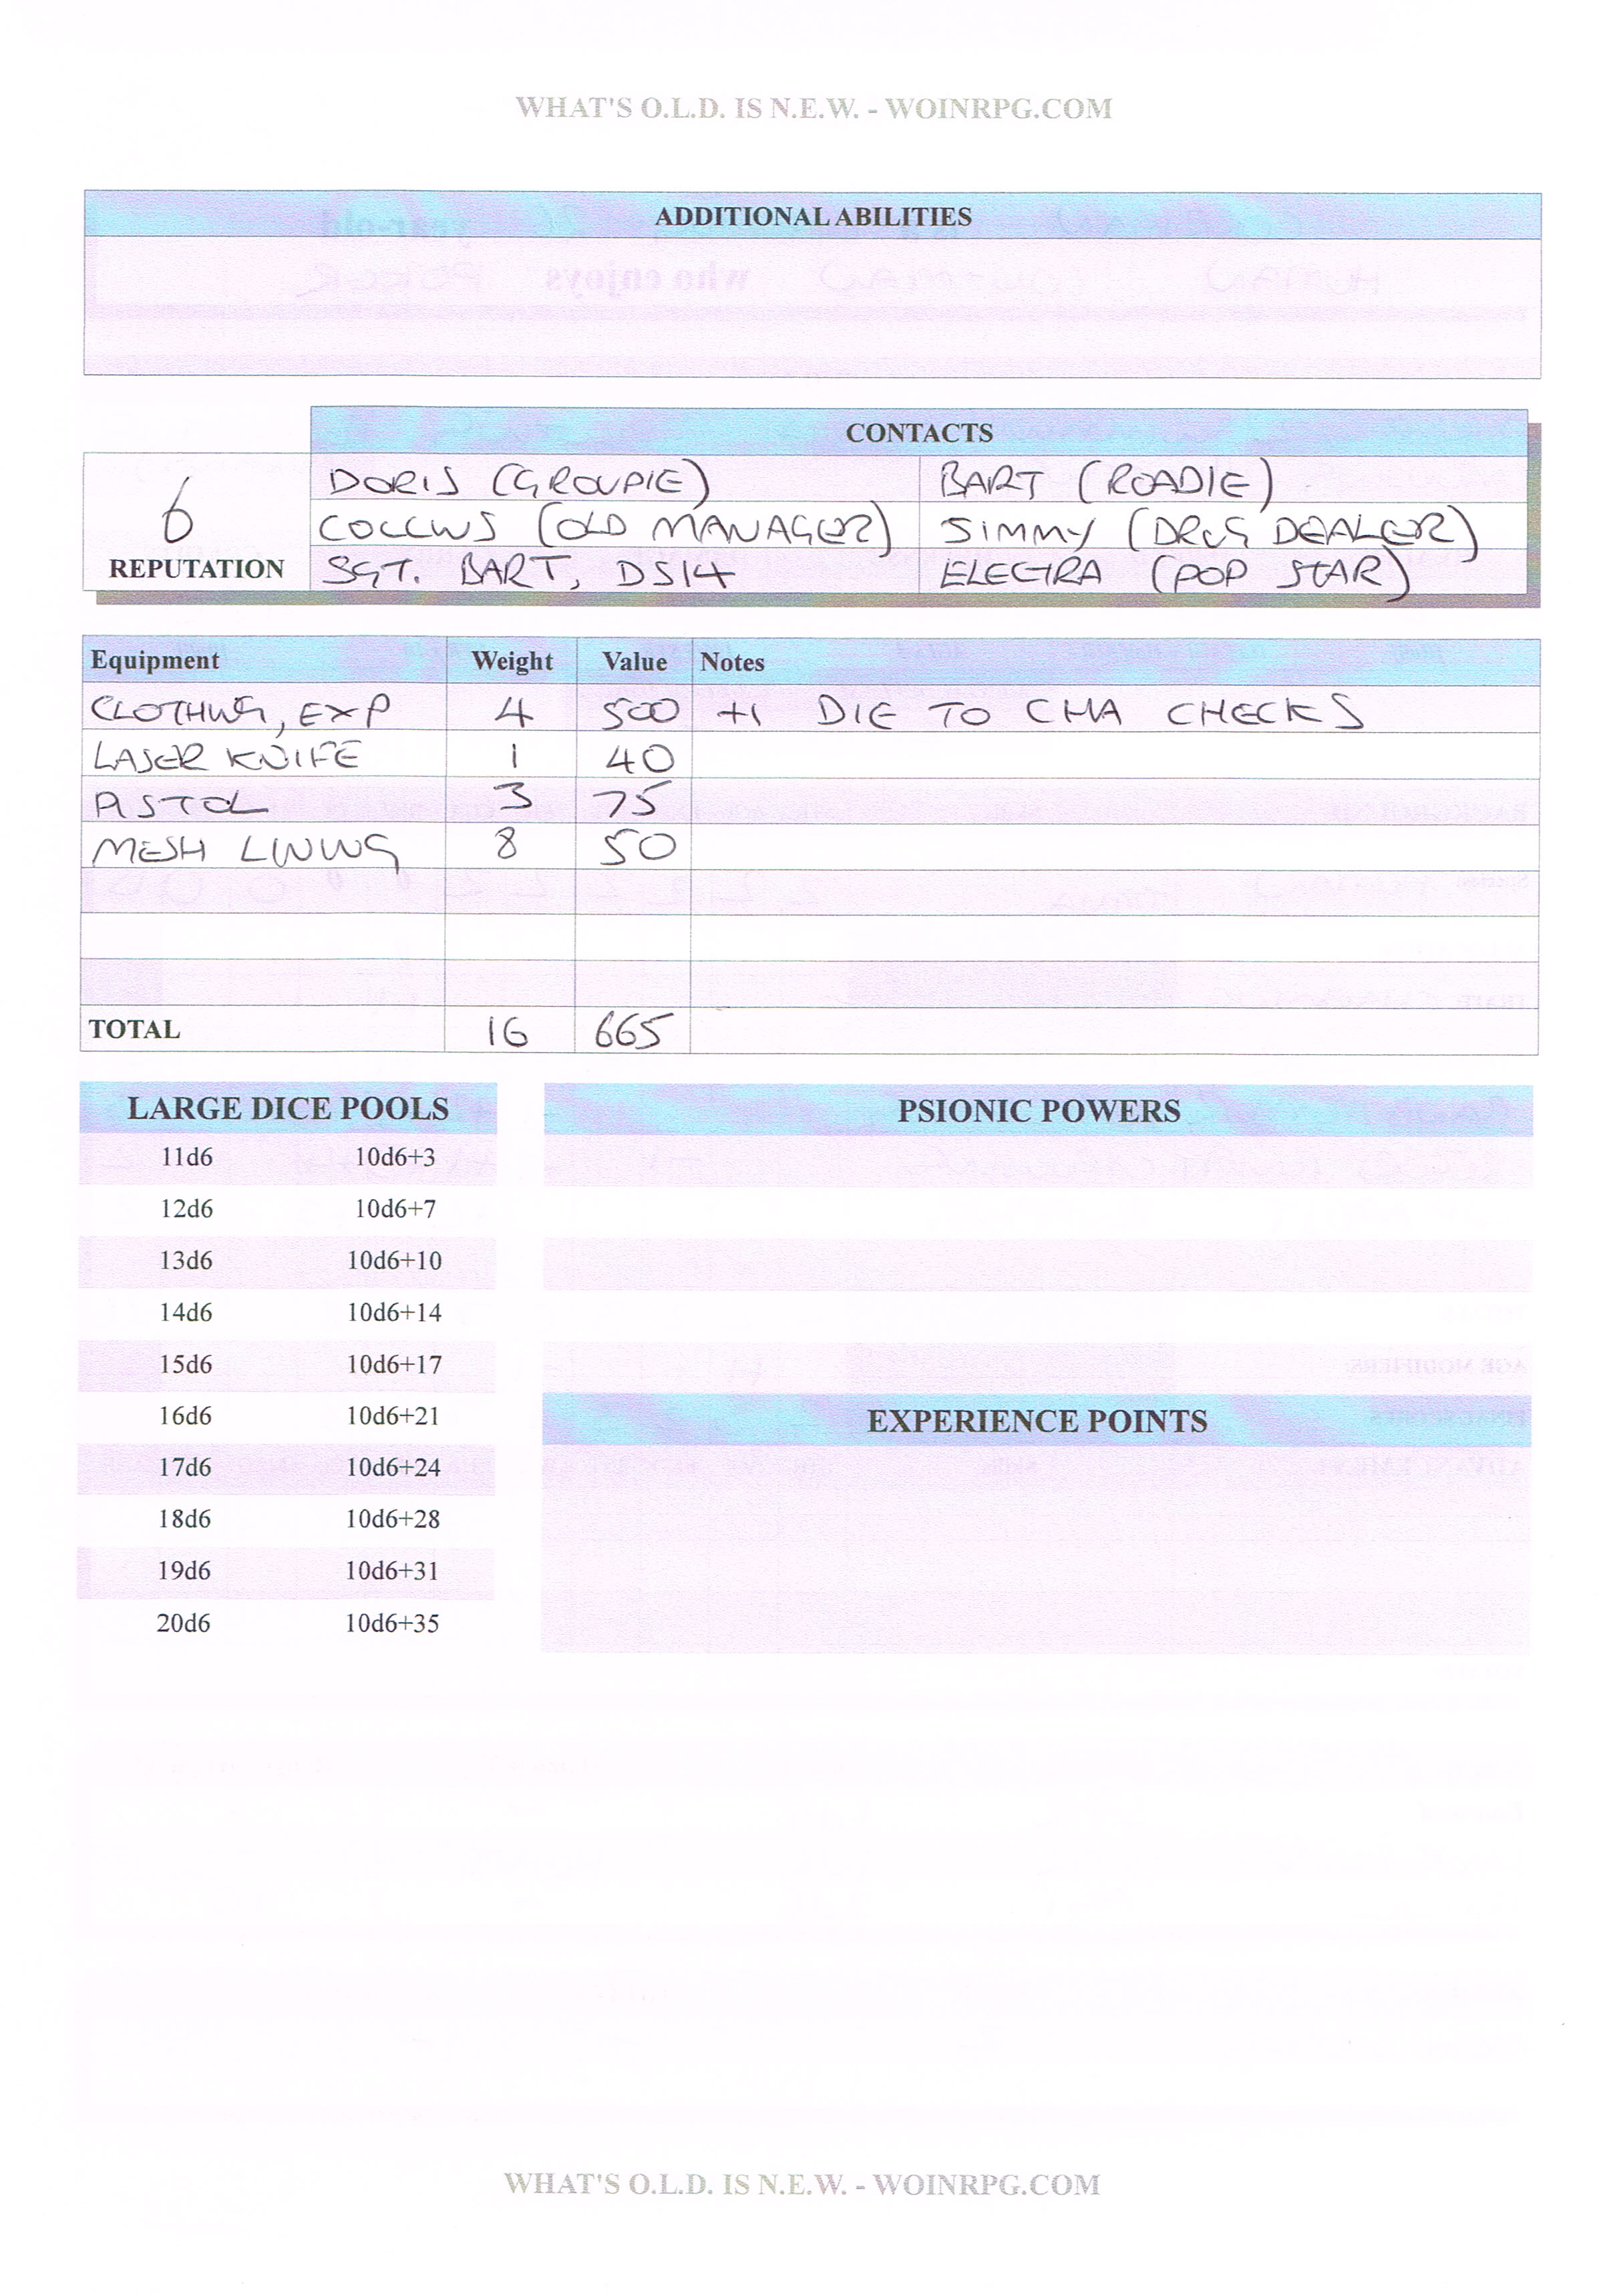 WHAT'S O.L.D. IS N.E.W. - WOINRPG.COM
ADDITIONAL ABILITIES
who enjoys
year-old
CONTACTS
6 REPUTATION
DORIS (GROUPIE) BART (ROADIE)
COLLINS (OLD MANAGER) JIMMY (DRUG DEALER)
SGT. BART, DS14 ELECTRA (POP STAR)
Equipment Weight Value Notes
CLOTHING, EXP 4 500 +1 DIE TO CHA CHECKS
LASER KNIFE 1 40
PISTOL 3 75
MESH LINING 8 50
TOTAL 16 665
LARGE DICE POOLS
11d6 10d6+3
12d6 10d6+7
13d6 10d6+10
14d6 10d6+14
15d6 10d6+17
16d6 10d6+21
17d6 10d6+24
18d6 10d6+28
19d6 10d6+31
20d6 10d6+35
PSIONIC POWERS
EXPERIENCE POINTS
WHAT'S O.L.D. IS N.E.W. - WOINRPG.COM